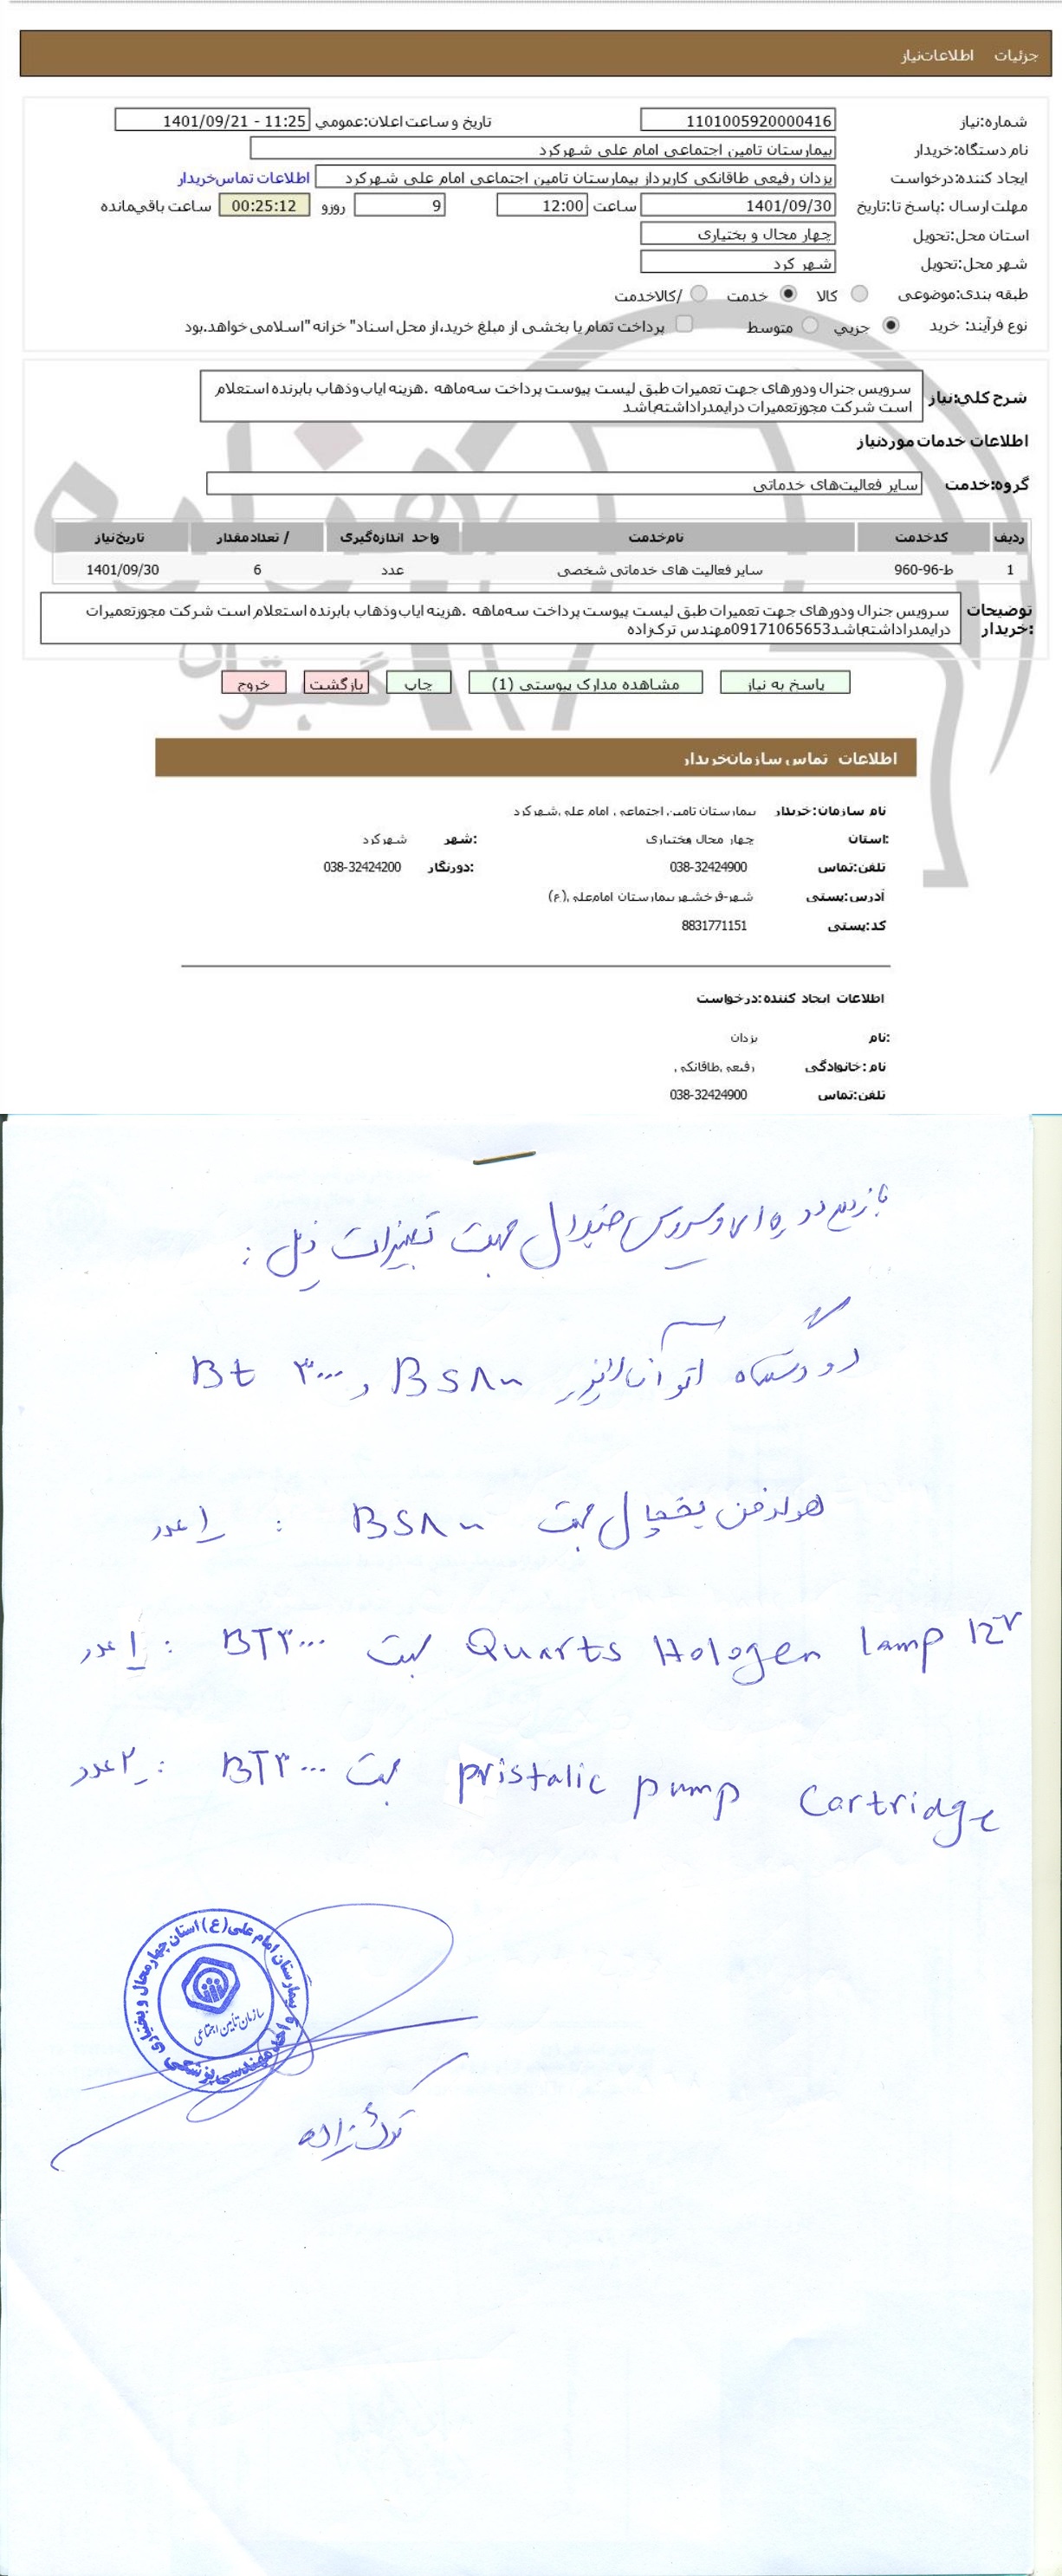 جزئیات اطلاعات نیاز
شماره نیاز: 1101005920000416 تاریخ و ساعت اعلان عمومی: 1401/09/21 - 11:25
نام دستگاه خریدار: بیمارستان تامین اجتماعی امام علی شهرکرد
ایجاد کننده درخواست: یزدان رفیعی طاقانکی کارپرداز بیمارستان تامین اجتماعی امام علی شهرکرد اطلاعات تماس خریدار
مهلت ارسال پاسخ: تا تاریخ: 1401/09/30 ساعت 12:00 9 روز و 00:25:12 ساعت باقی‌مانده
استان محل تحویل: چهار محال و بختیاری
شهر محل تحویل: شهر کرد
طبقه بندی موضوعی: کالا خدمت کالا/خدمت
نوع فرآیند خرید: جزیی متوسط پرداخت تمام یا بخشی از مبلغ خرید،از محل "اسناد خزانه اسلامی" خواهد بود.
شرح کلی نیاز: سرویس جنرال ودورهای جهت تعمیرات طبق لیست پیوست پرداخت سه‌ماهه .هزینه ایاب‌وذهاب بابرنده استعلام
است شرکت مجوزتعمیرات درایمدراداشته‌باشد
اطلاعات خدمات مورد نیاز
گروه خدمت: سایر فعالیت‌های خدماتی
ردیف کد خدمت نام خدمت واحد اندازه‌گیری تعداد / مقدار تاریخ نیاز
1 ط-96-960 سایر فعالیت های خدماتی شخصی عدد 6 1401/09/30
توضیحات سرویس جنرال ودورهای جهت تعمیرات طبق لیست پیوست پرداخت سه‌ماهه .هزینه ایاب‌وذهاب بابرنده استعلام است شرکت مجوزتعمیرات
خریدار: درایمدراداشته‌باشد09171065653مهندس ترک‌زاده
پاسخ به نیاز مشاهده مدارک پیوستی (1) چاپ بازگشت خروج
اطلاعات تماس سازمان خریدار
نام سازمان خریدار: بیمارستان تامین اجتماعی امام علی شهرکرد
استان: چهار محال وبختیاری شهر: شهرکرد
تلفن تماس: 038-32424900 دورنگار: 038-32424200
آدرس پستی: شهر-فرخشهر بیمارستان امام‌علی (ع)
کد پستی: 8831771151
اطلاعات ایجاد کننده درخواست:
نام: یزدان
نام خانوادگی: رفیعی طاقانکی
تلفن تماس: 038-32424900
بازدید دوره ای و سرویس جنرال جهت تعمیرات ذیل :
دو دستگاه اتوآنالایزر BS۸۰۰ و Bt ۳۰۰۰
هولدفن یخچال جهت BS۸۰۰ : ۱ عدد
Quarts Hologen lamp 12v جهت BT۳۰۰۰ : ۱ عدد
pristalic pump Cartridge جهت BT۳۰۰۰ : ۲ عدد
بیمارستان امام علی (ع) استان چهارمحال و بختیاری
سازمان تأمین اجتماعی
واحد مهندسی پزشکی
ترک زاده